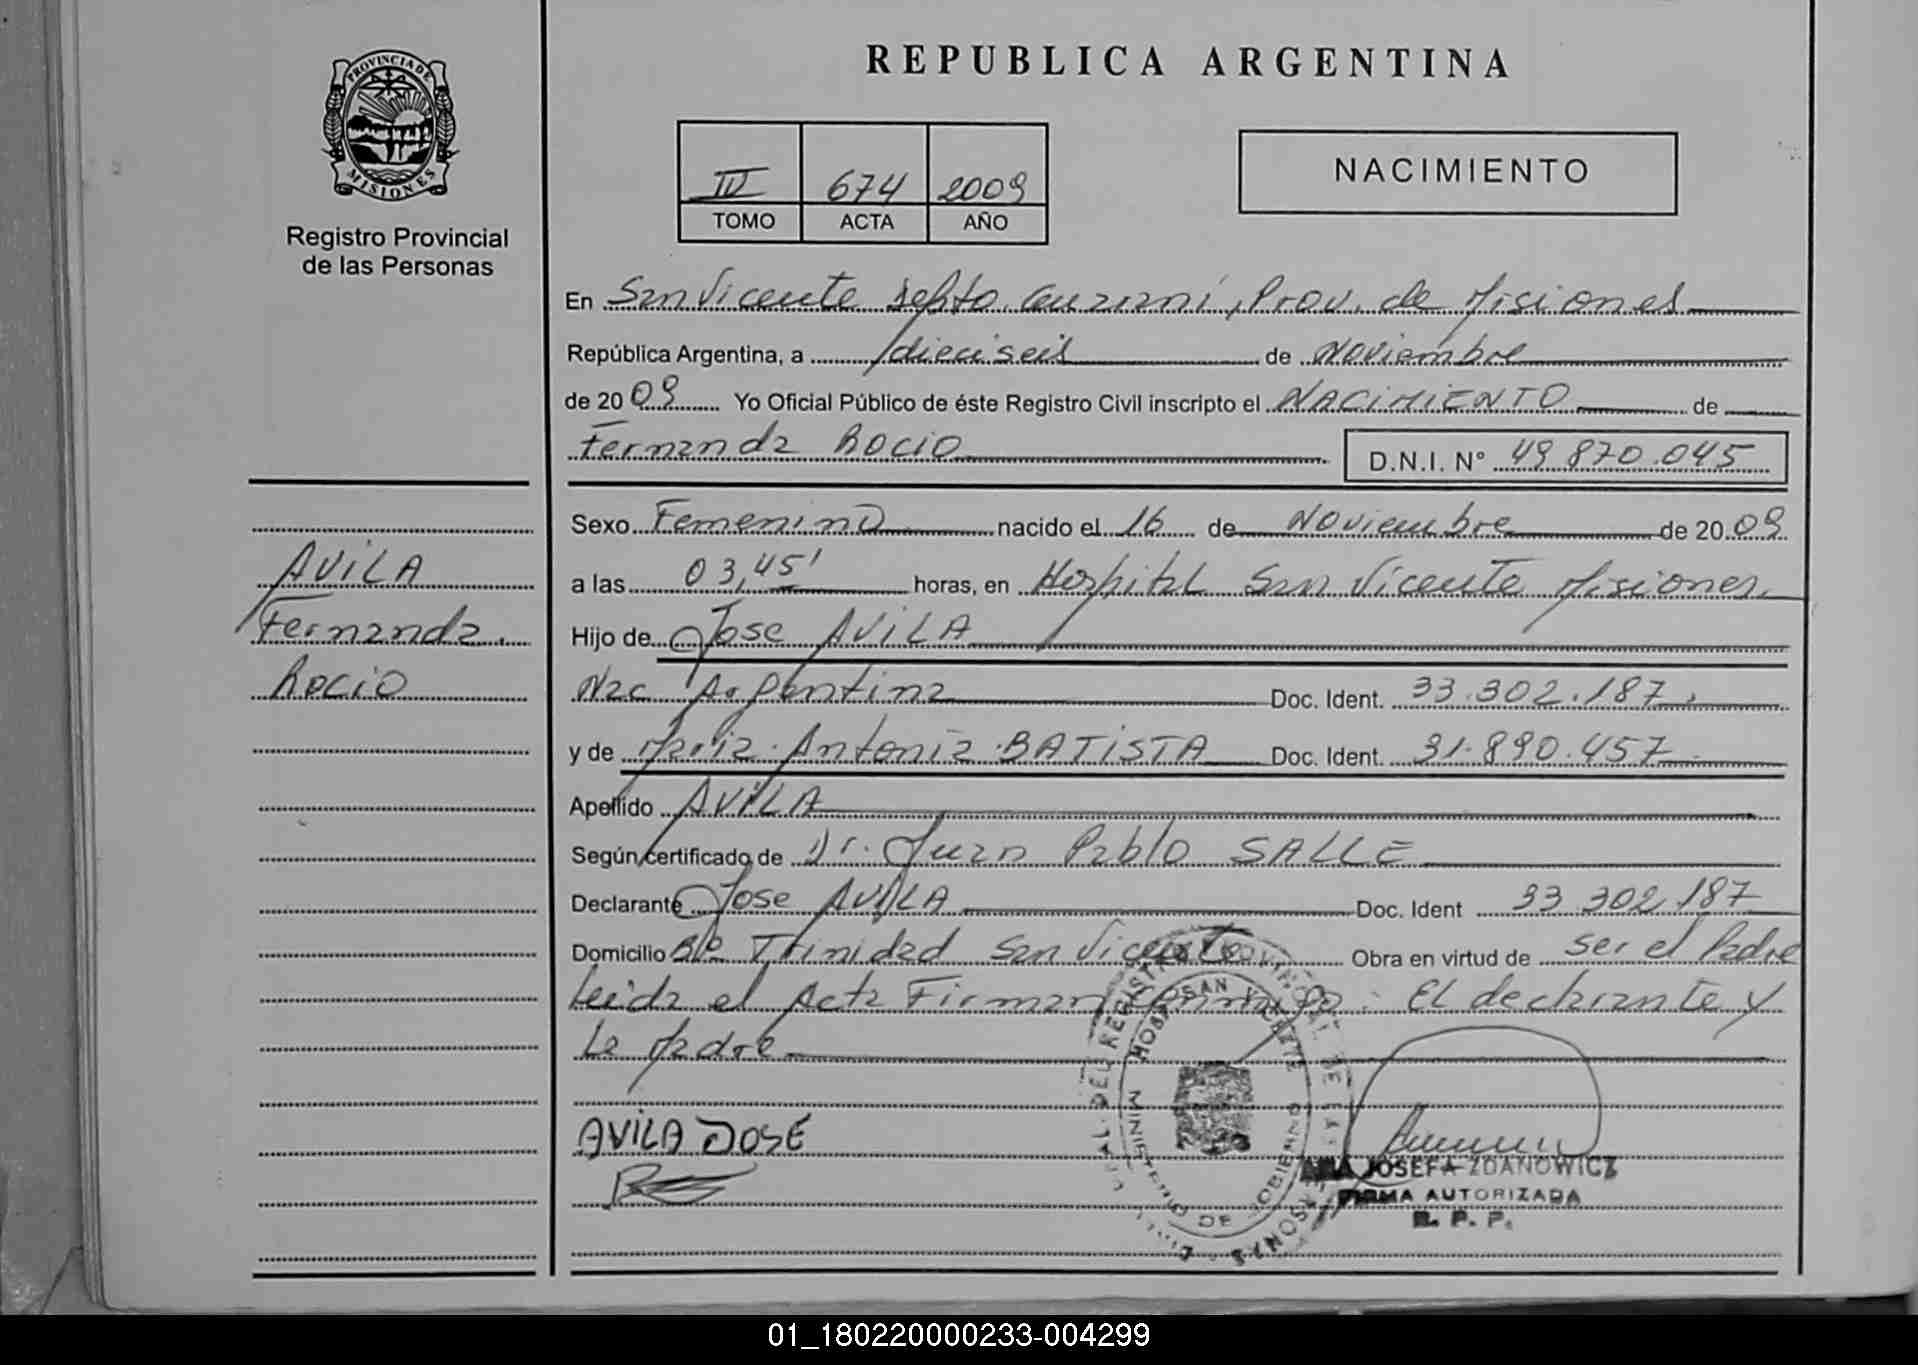 PROVINCIA DE
MISIONES
Registro Provincial
de las Personas
REPUBLICA ARGENTINA
IV 674 2009
TOMO ACTA AÑO
NACIMIENTO
En San Vicente Depto. Guarani, Prov. de Misiones
República Argentina, a dieciseis de Noviembre
de 2009 Yo Oficial Público de éste Registro Civil inscripto el NACIMIENTO de
Fernanda Rocio D.N.I. N° 49.870.045
Sexo Femenino nacido el 16 de Noviembre de 2009
a las 03,45' horas, en Hospital San Vicente Misiones.
Hijo de Jose AVILA
Nac Argentina Doc. Ident. 33.302.187.
y de Maria Antonia BATISTA Doc. Ident. 31.890.457
Apellido AVILA
Según certificado de Dr. Juan Pablo SALLE
Declarante Jose AVILA Doc. Ident 33 302 187
Domicilio B/o Trinidad San Vicente Obra en virtud de ser el Padre
Leida el Acta Firman conmigo: El declarante y
La Madre
AVILA
Fernanda
Rocio
AVILA JOSÉ
HOSP. SAN VICENTE
MINISTERIO DE GOBIERNO
ANA JOSEFA ZDANOWICZ
FIRMA AUTORIZADA
R. P. P.
01_180220000233-004299